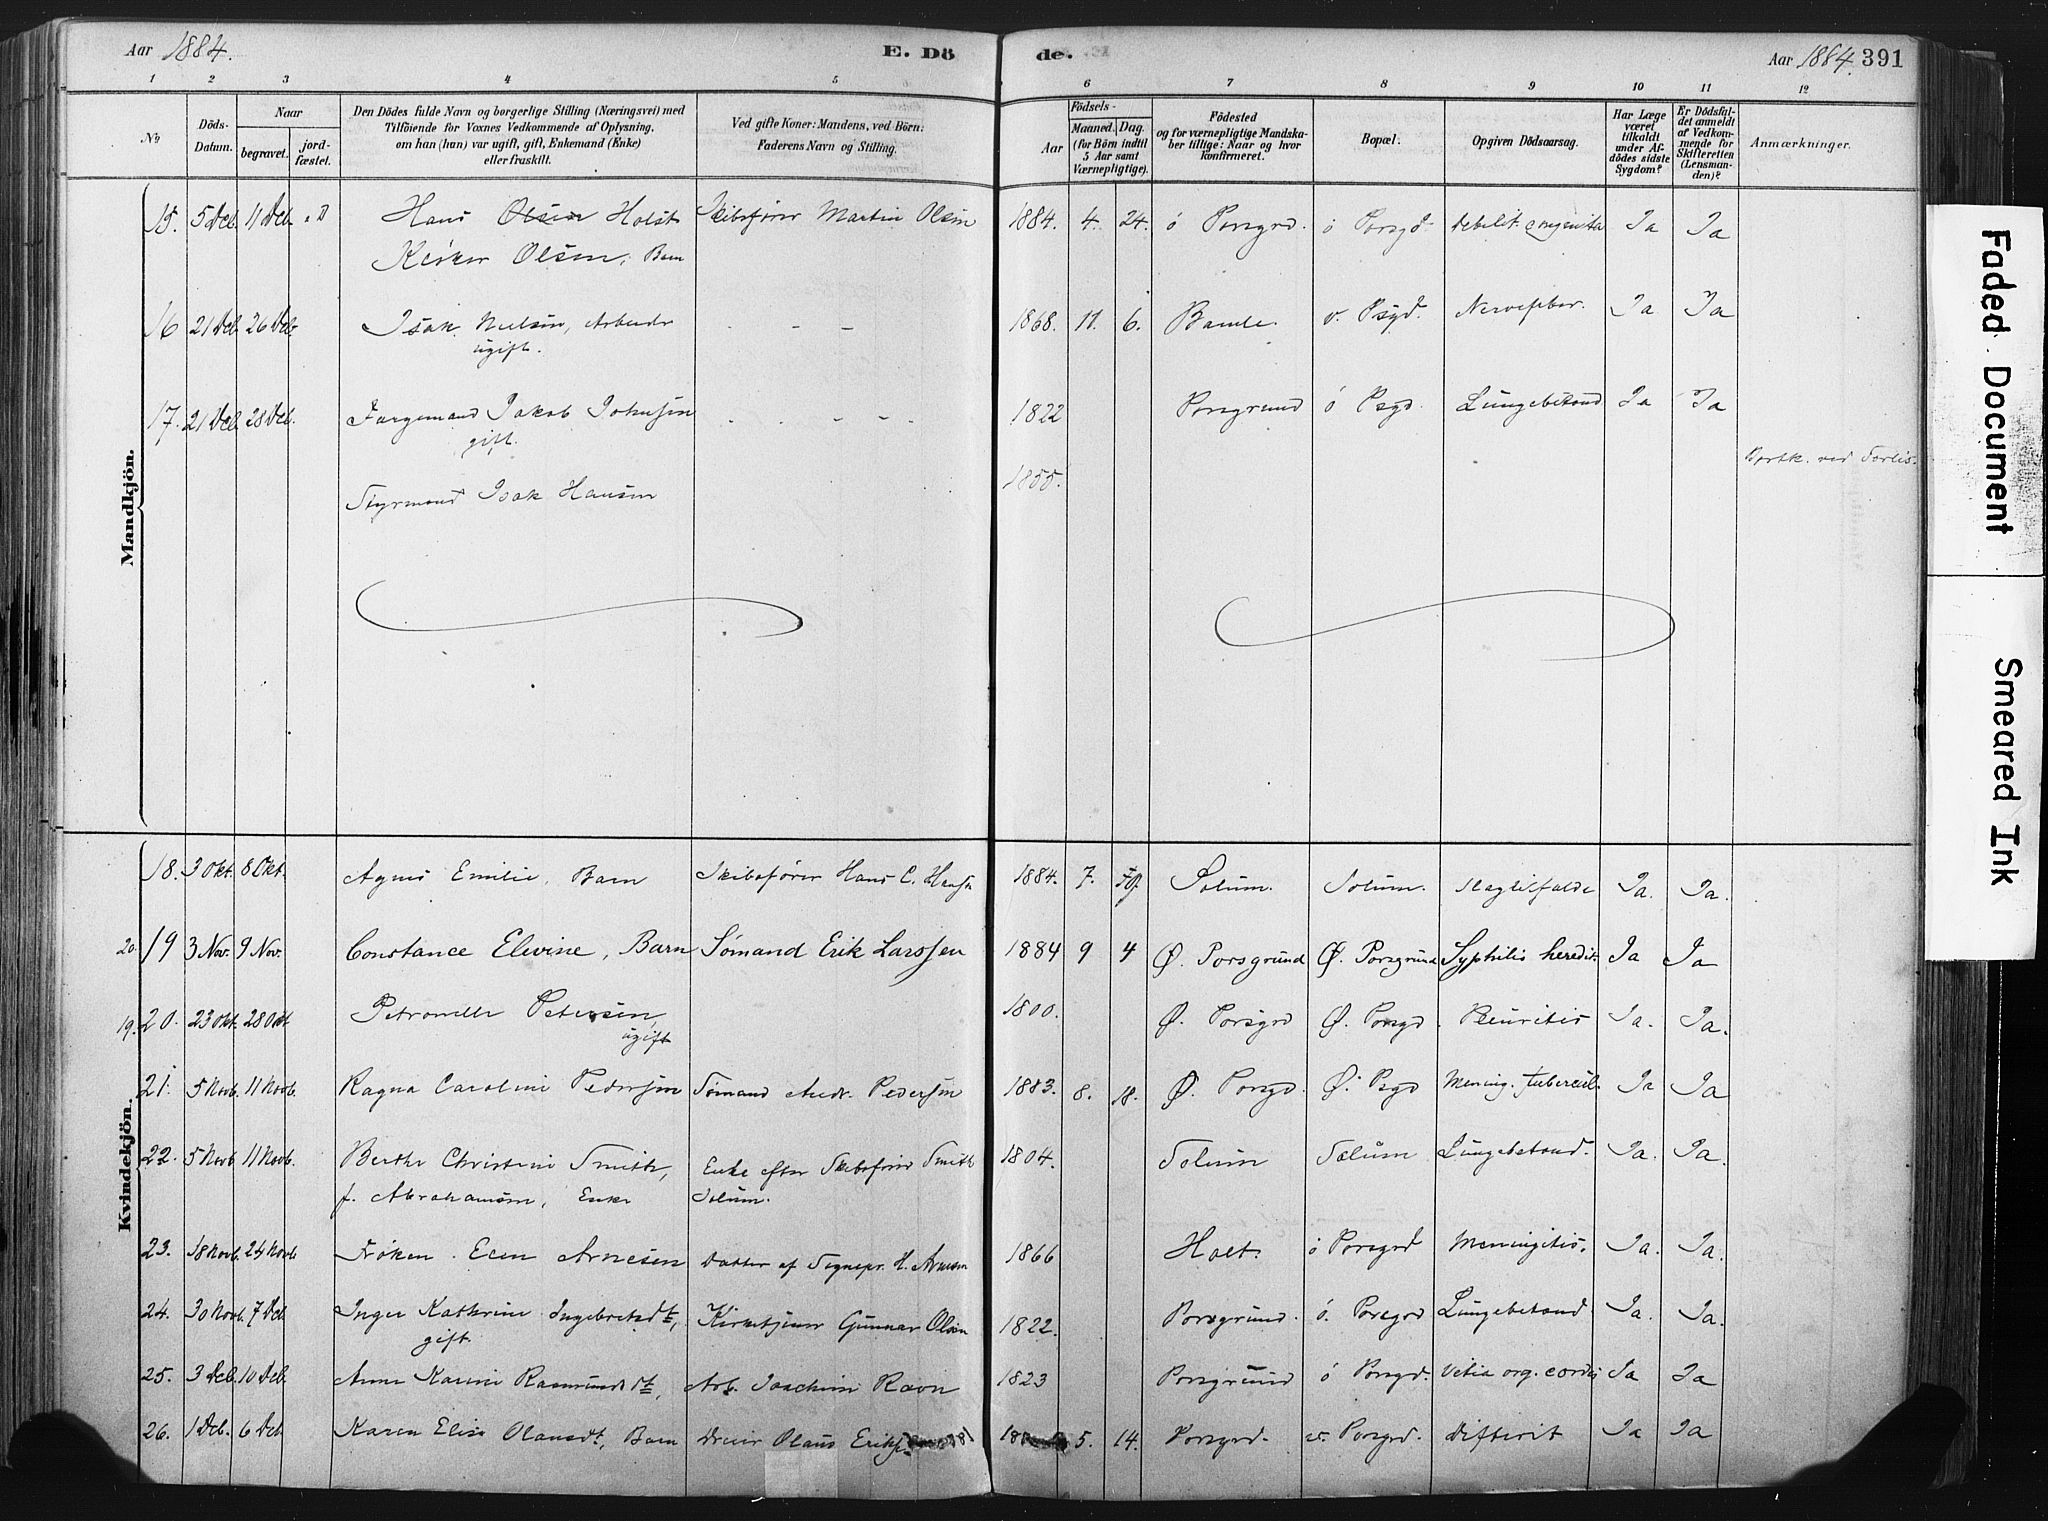 Aar 1884. E. Dö de. Aar 1884. 391
1 2 3 4 5 6 7 8 9 10 11 12
No Döds-Datum. Naar begravet. jord-fæstet. Den Dödes fulde Navn og borgerlige Stilling (Næringsvei) med Tilföiende for Voxnes Vedkommende af Oplysning, om han (hun) var ugift, gift, Enkemand (Enke) eller fraskilt. Ved gifte Koner: Mandens, ved Börn: Faderens Navn og Stilling. Födsels- Aar Maaned. Dag. (for Börn indtil 5 Aar samt Værnepligtige). Födested og for værnepligtige Mandskaber tillige: Naar og hvor konfirmeret. Bopæl. Opgiven Dödsaarsag. Har Læge været tilkaldt under Afdödes sidste Sygdom? Er Dödsfaldet anmeldt af Vedkommende for Skifteretten (Lensmanden)? Anmærkninger.
Mandkjön.
15. 5 Deb. 11 Deb. Hans Olsen Holst Skibsfører Martin Olsen 1884. 4. 24. ö Porsgrd. ö Porsgd. Debilit. congenita Ja Ja
Kerker Olsen, Barn
16 21 Deb. 26 Deb. Isak Nielsen, Arbeider - - - 1868. 11. 6. Bamle. v. Psgd. Nervefeber. Ja Ja
ugift.
17. 21 Deb. 28 Deb. Færgemand Jakob Johnsen - - - - 1822 Porsgrund ö Psgd. Lungebetænd Ja Ja
gift.
Bortk. ved Forlis.
Styrmand Isak Hansen 1855.
Kvindekjön.
18. 3 Okt. 8 Okt. Agnes Emilie, Barn Skibsfører Hans C. Hansen 1884. 7. Solum. Solum. Slagtilfælde Ja. Ja.
20. 19 3 Nov. 9 Nov. Constance Elvine, Barn Sømand Erik Larssen 1884 9 4 Ø. Porsgrund Ø. Porsgrund Syphilis heredit. Ja Ja
19. 20. 23 Okt. 28 Okt Petronelle Petersen, 1800. Ø. Porsgrd Ø. Porsgd. Pleuritis Ja. Ja.
ugift
21. 5 Novb. 11 Novb. Ragna Caroline Pedersen Sømand Andr. Pedersen 1883. 8. 18. Ø. Porsgd. Ø. Psgd Mening. tubercul. Ja Ja
22. 5 Novb 11 Novb. Berthe Christine Smith, Enke efter Skibsfører Smith 1804. Solum Solum Lungebetænd. Ja. Ja.
f. Abrahamsen, Enke Solum.
23. 18 Novb. 24 Novb Frøken Ellen Arnesen Datter af Sognepr. H. Arnesen 1866 Holt. ö Porsgrd Meningitis. Ja. Ja.
24. 30 Novb. 7 Deb Inger Kathrine Ingebretsdt, Kirketjener Gunnar Olsen 1822. Porsgrund. ö. Porsgrd Lungebetænd Ja. Ja.
gift.
25. 3 Deb. 10 Deb. Anne Karine Rasmusdt, Arb. Joachim Ravn 1823 Porsgrund ö Porsgd. Vitia org. cordis Ja Ja
26. 1 Deb. 6 Deb Karen Elise Olausdt, Barn Dreier Olaus 5. 14. Porsgrd. v. Porsgrd. Difterit Ja Ja
Faded Document
Smeared Ink